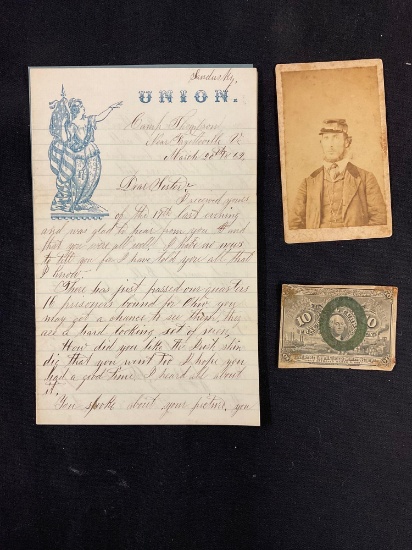 Sandusky,
UNION.
Camp
Near Fayetteville V
March 20th 62,
Dear Sister;
I received yours
of the 17th last evening
and was glad to hear from you &
that you were all well. I have no news
to tell you for I have told you all that
I know.
There has just passed our quarters
16 prisoners bound for Ohio you
may get a chance to see them, they
are a hard looking set of men,
How did you like the
that you went to I hope you
had a good time I heard all about
it.
You spoke about your picture, you
10
10